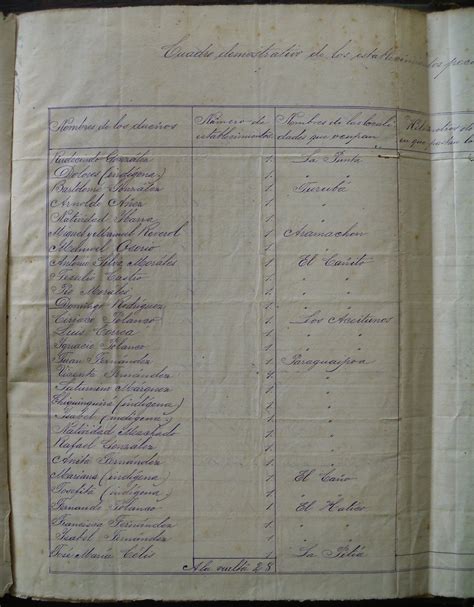 Cuadro demostrativo de los establecimientos
Nombres de los dueños Número de establecimientos Nombres de las locali dades que ocupan
González 1 La Punta
Dolores (indígena) 1 "
Bartolomé González 1
Arnoldo Añez 1 "
Natividad 1 "
Miguel y Manuel 1
Manuel Osorio 1 "
Antonio Silva Morales 1 El Cañito
Castro 1 "
Pío Morales 1 "
Domingo Rodriguez 1 "
Ciriaco Polanco 1 Los Aceitunos
Luis Correa 1 "
Ignacio Polanco 1 "
Juan Fernández 1 Paraguaipoa
Vicente Fernández "
Saturnino 1 "
Chiquinquirá (indígena) 1 "
Isabel (indígena) 1 "
Natividad Machado 1 "
Rafael González 1 "
Anita Fernández 1 "
Mariana (indígena) 1 El Caño
Josefita (indígena) 1 "
Fernando Polanco 1 El
Francisca Fernández 1 "
Isabel Fernández 1 "
José María Célis 1 La
A la vuelta 28